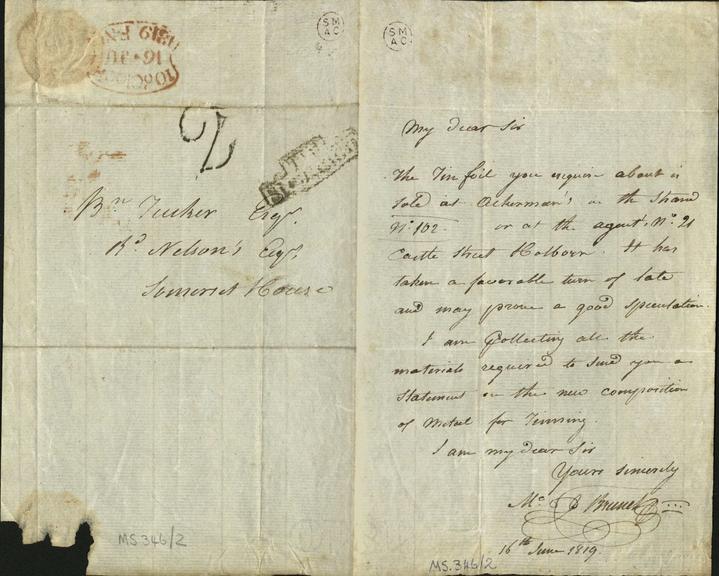 10 o'CLOCK
16 • JU
1819 FN
SM
AC
2
Bn Tucker Esqr.
Rd Nelson's Esqr.
Somerset House
MS 346/2
SM
AC
My dear Sir
The Tin foil you enquire about is
sold at Ackerman's in the Strand
No. 102. or at the agent's No. 21
Castle Street Holborn. It has
taken a favorable turn of late
and may prove a good speculation.
I am Collecting all the
materials required to send you a
Statement on the new composition
of Metal for Tinning.
I am my dear Sir
Yours sincerely
Mc I Brunel
16th June 1819.
MS.346/2